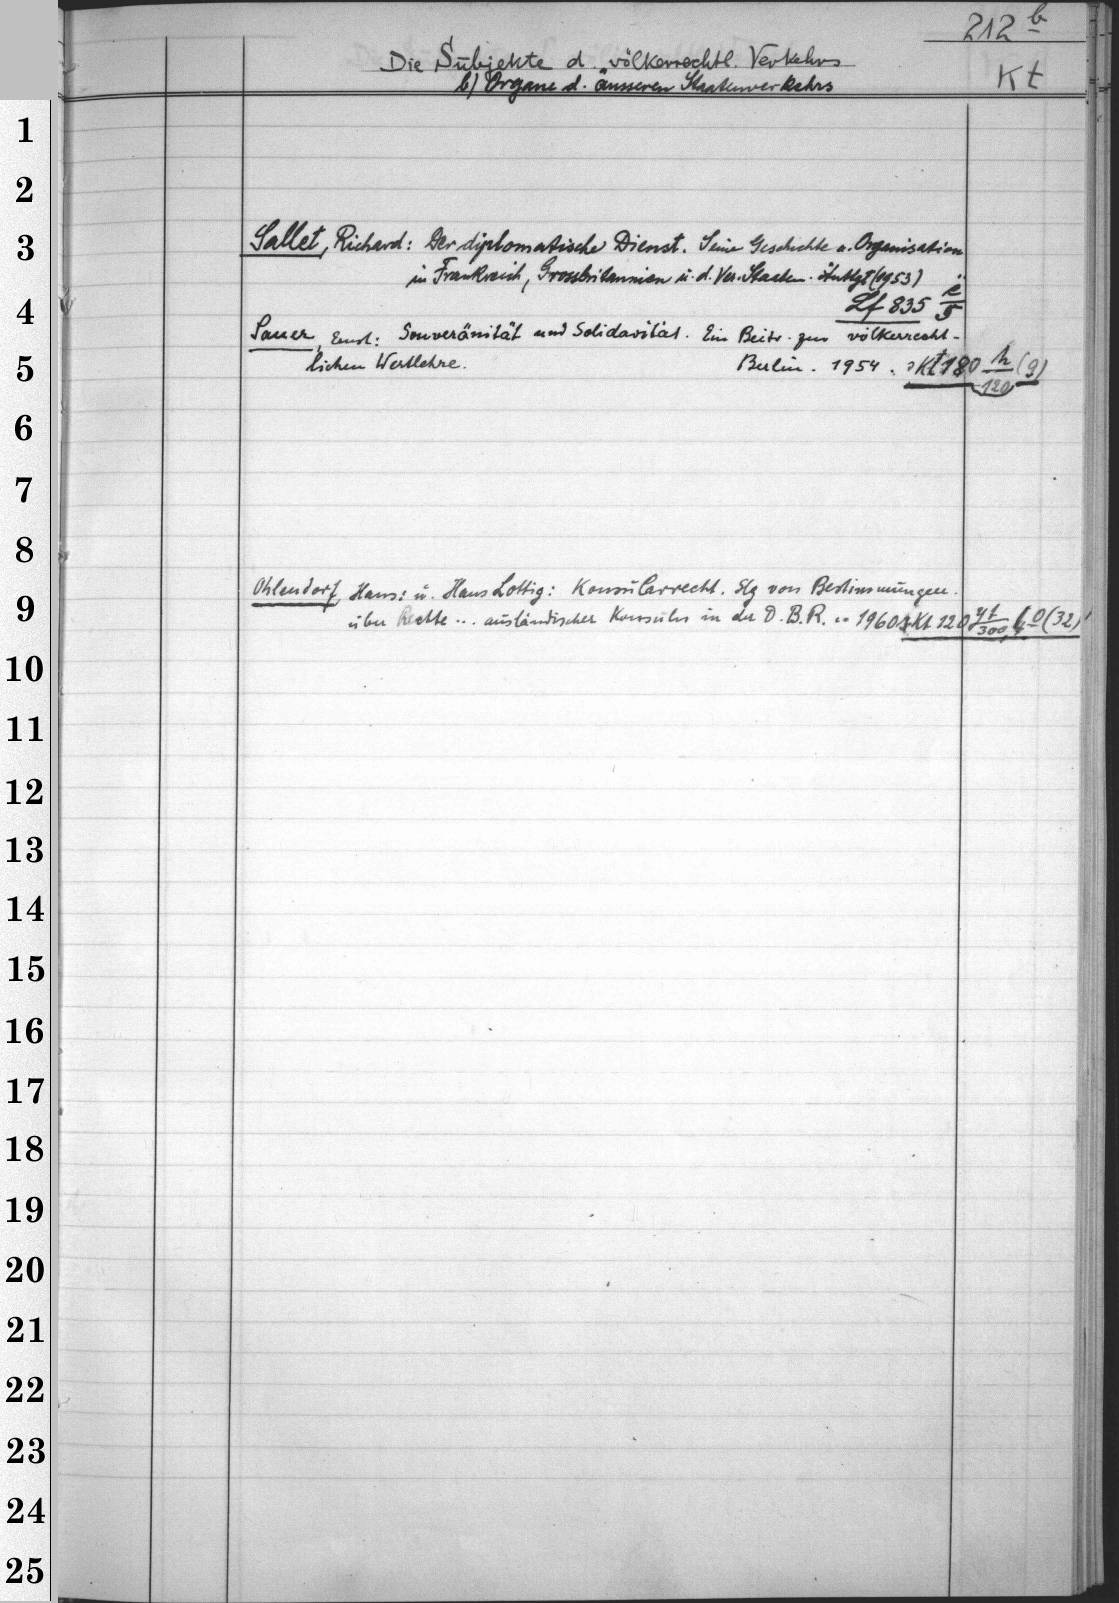 212 b
Die Subjekte d. völkerrechtl. Verkehrs
Kt
b) Organe d. äusseren Staatenverkehrs
1
2
3 Sallet, Richard: Der diplomatische Dienst. Seine Geschichte u. Organisation
in Frankreich, Grossbritannien u. d. Ver. Staaten. Stuttgt (1953)
4 Lf 835
Sauer, Ernst: Souveränität und Solidarität. Ein Beitr. zur völkerrecht-
5 lichen Wertlehre. Berlin. 1954. Kt 180 h/120 (9)
6
7
8
Ohlendorf, Hans: u. Hans Lottig: Konsularrecht. Slg von Bestimmungen.
9 über Rechte ... ausländischer Konsuln in der D.B.R. .. 1960 Kt 120 yt/300 (32)
10
11
12
13
14
15
16
17
18
19
20
21
22
23
24
25